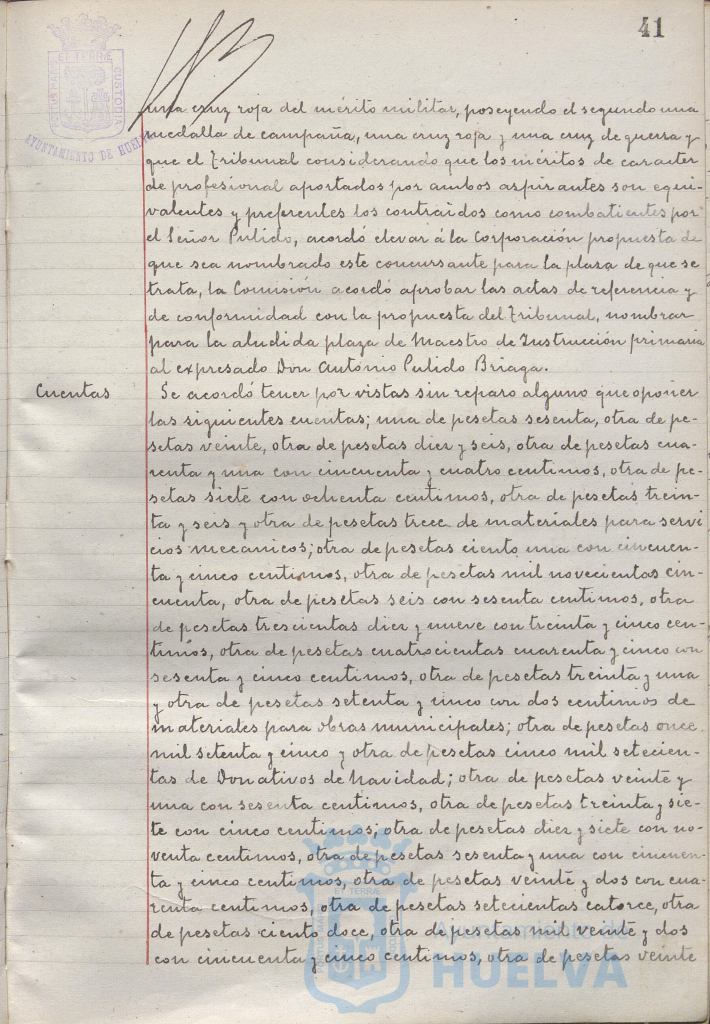 41
PORTUS MARIS ET TERRÆ CUSTODIA
AYUNTAMIENTO DE HUELVA
una cruz roja del mérito militar, poseyendo el segundo una
medalla de campaña, una cruz roja y una cruz de guerra y
que el Tribunal considerando que los méritos de caracter
de profesional aportados por ambos aspirantes son equi-
valentes y preferentes los contraidos como combatientes por
el Señor Pulido, acordó elevar á la Corporación propuesta de
que sea nombrado este concursante para la plaza de que se
trata, la Comisión acordó aprobar las actas de referencia y
de conformidad con la propuesta del Tribunal, nombrar
para la aludida plaza de Maestro de Instrucción primaria
al expresado Don Antonio Pulido Briaga.
Cuentas
Se acordó tener por vistas sin reparo alguno que oponer
las siguientes cuentas; una de pesetas sesenta, otra de pe-
setas veinte, otra de pesetas diez y seis, otra de pesetas cua-
renta y una con cincuenta y cuatro centimos, otra de pe-
setas siete con ochenta centimos, otra de pesetas trein-
ta y seis y otra de pesetas trece de materiales para servi
cios mecanicos; otra de pesetas ciento una con cincuen-
ta y cinco centimos, otra de pesetas mil novecientas cin-
cuenta, otra de pesetas seis con sesenta centimos, otra
de pesetas trescientas diez y nueve con treinta y cinco cen-
timos, otra de pesetas cuatrocientas cuarenta y cinco con
sesenta y cinco centimos, otra de pesetas treinta y una
y otra de pesetas setenta y cinco con dos centimos de
materiales para obras municipales; otra de pesetas once
mil setenta y cinco y otra de pesetas cinco mil setecien-
tas de Donativos de Navidad; otra de pesetas veinte y
una con sesenta centimos, otra de pesetas treinta y sie-
te con cinco centimos, otra de pesetas diez y siete con no-
venta centimos, otra de pesetas sesenta y una con cincuen-
ta y cinco centimos, otra de pesetas veinte y dos con cua-
renta centimos, otra de pesetas setecientas catorce, otra
de pesetas ciento doce, otra de pesetas mil veinte y dos
con cincuenta y cinco centimos, otra de pesetas veinte
Ayuntamiento de
HUELVA